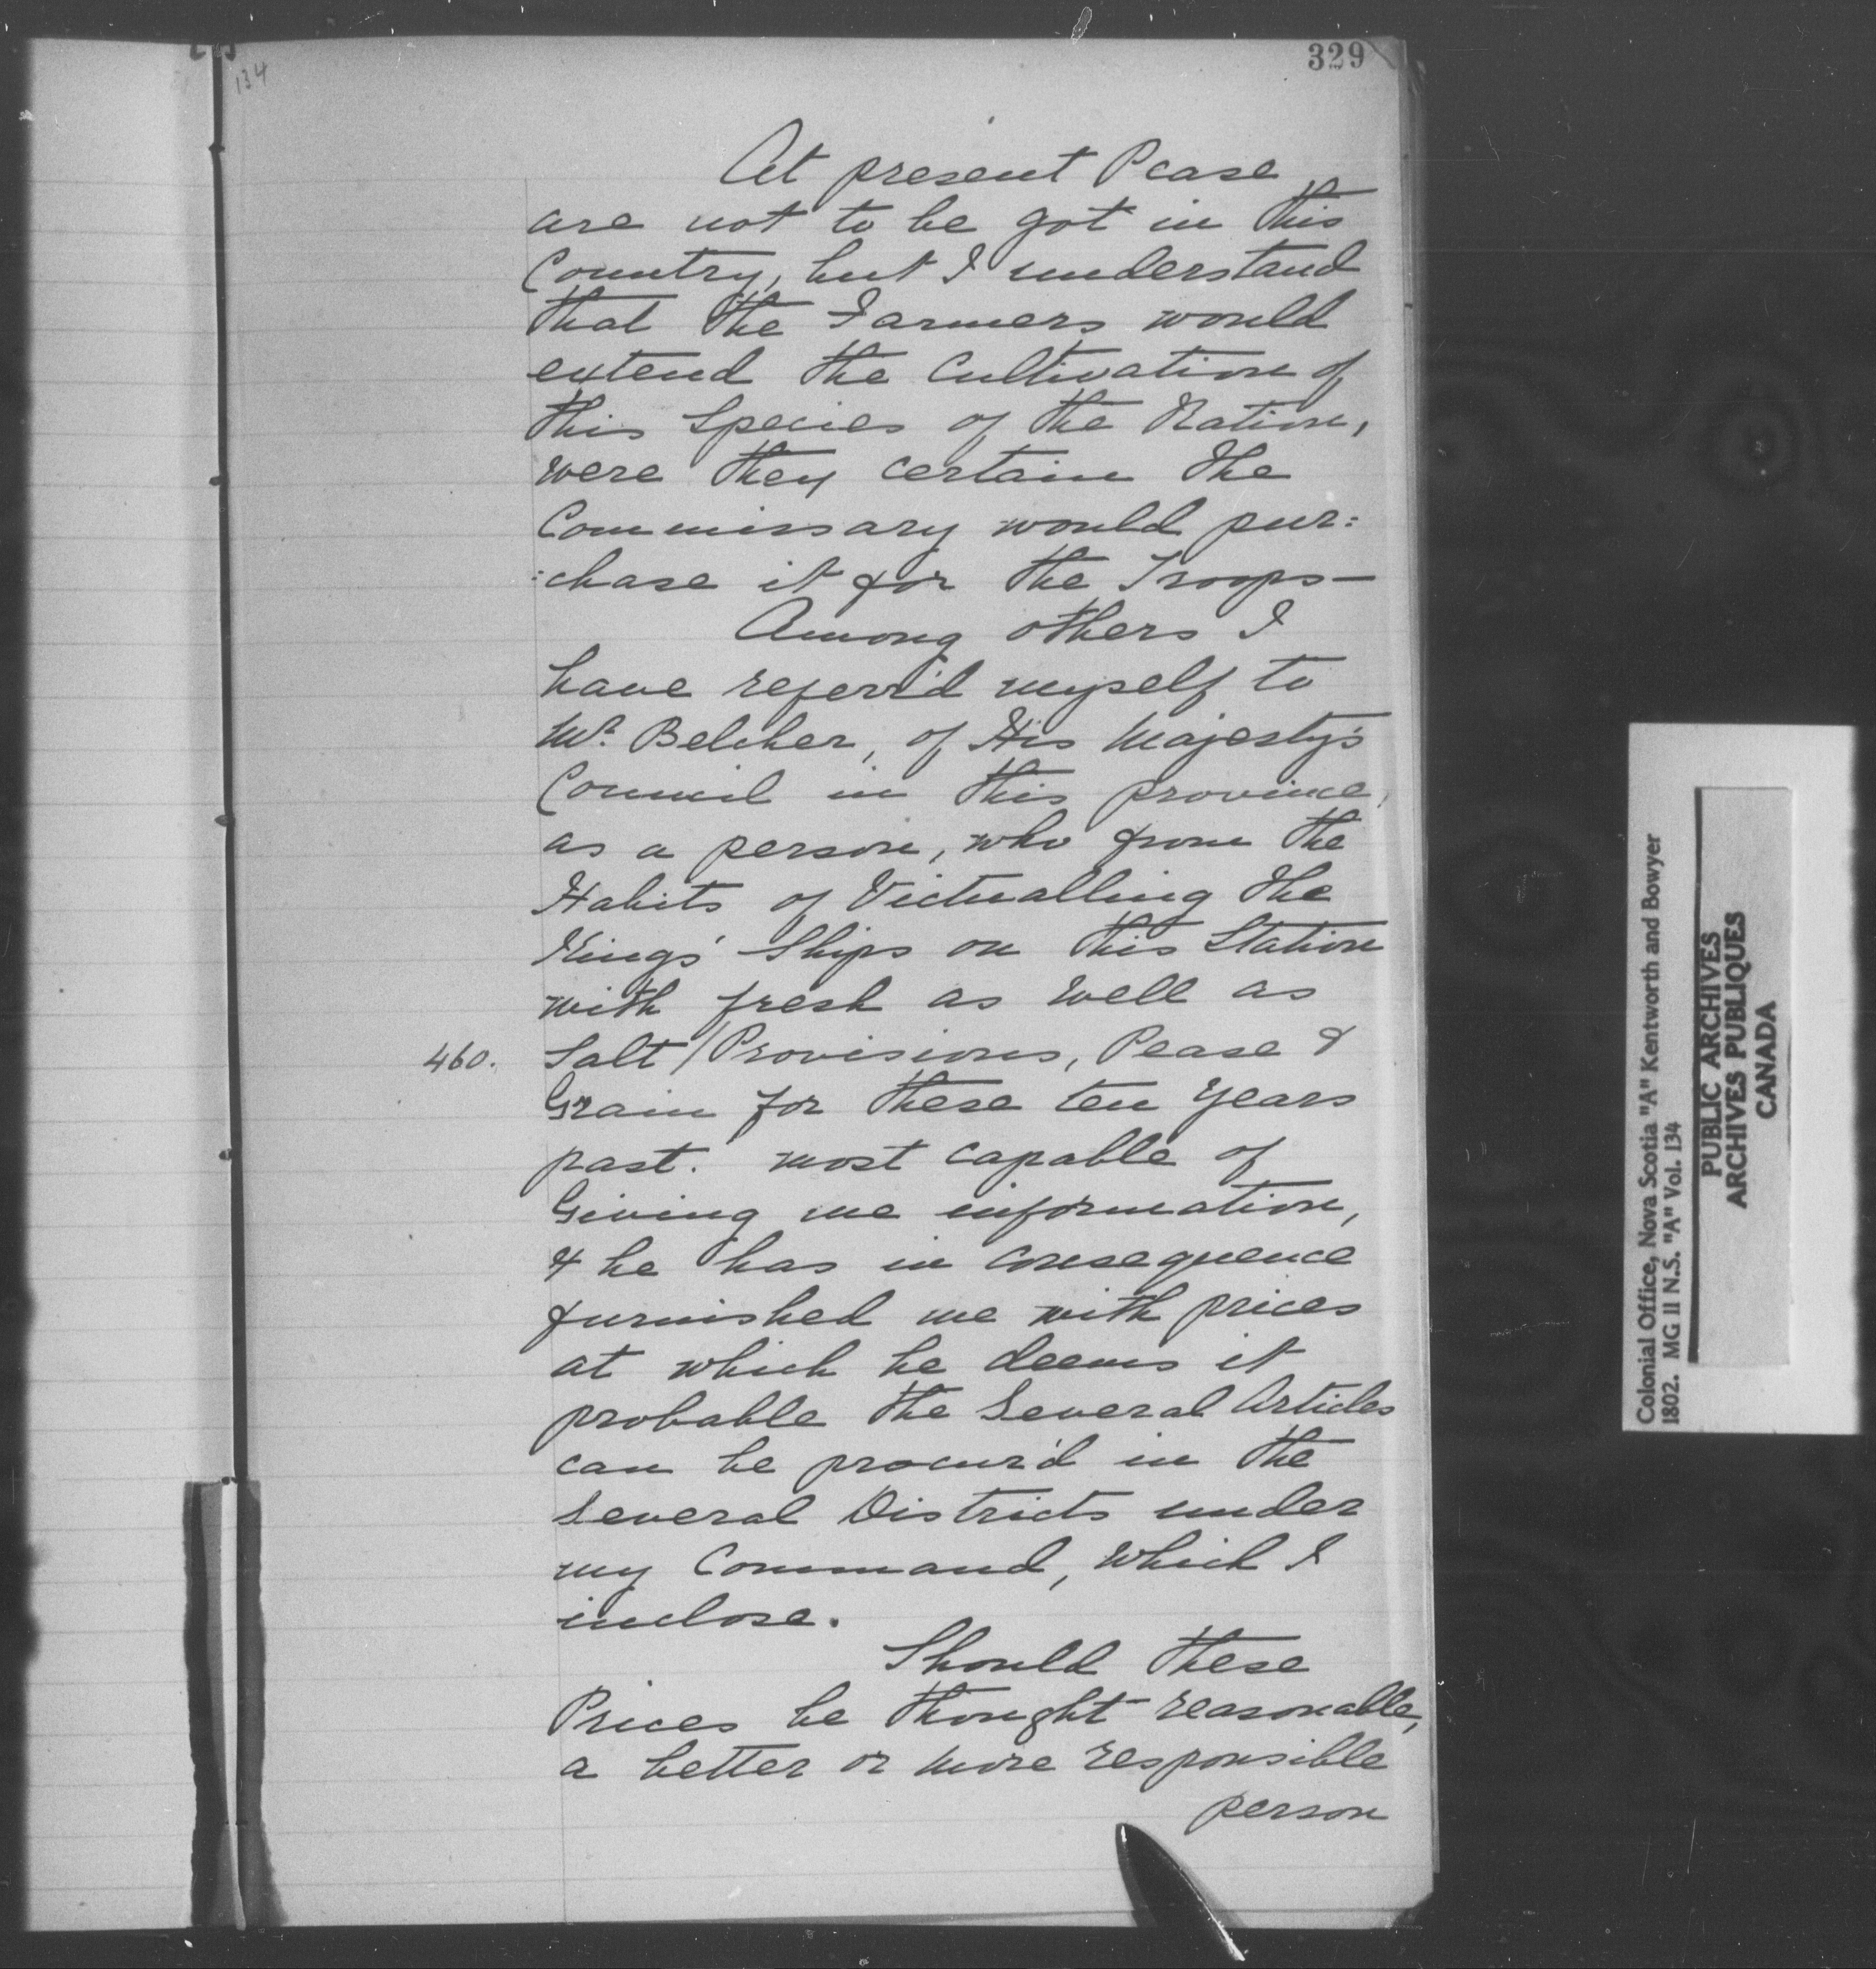 329
134
At present Pease
are not to be got in this
Country, but I understand
that the Farmers would
extend the Cultivation of
this Species of the Ration,
were they certain the
Commissary would pur:
:chase it for the Troops—
Among others I
have referr'd myself to
Mr. Belcher, of His Majesty's
Council in this province,
as a person, who from the
Habits of Victualling the
Kings' Ships on this Station
with fresh as well as
460. Salt / Provisions, Pease &
Grain for these ten Years
past. most capable of
Giving me information,
& he has in consequence
furnished me with prices
at which he deems it
probable the Several Articles
can be procur'd in the
Several Districts under
my Command, which I
inclose.
Should these
Prices be thought reasonable,
a better or more responsible
person
Colonial Office, Nova Scotia "A" Kentworth and Bowyer
1802. MG II N.S. "A" Vol. 134
PUBLIC ARCHIVES
ARCHIVES PUBLIQUES
CANADA